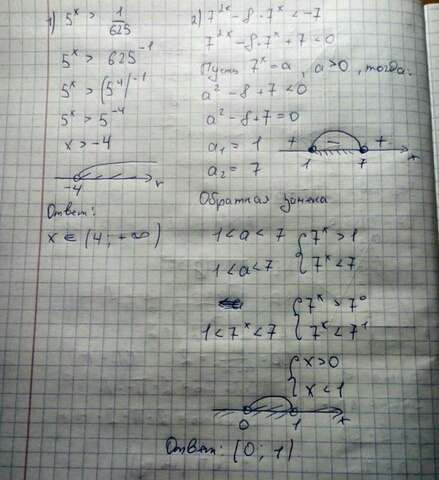 1) 5^x > 1/625
5^x > 625^-1
5^x > (5^4)^-1
5^x > 5^-4
x > -4
-4 x
Ответ:
x ∈ (4; +∞)
2) 7^2x - 8·7^x < -7
7^2x - 8·7^x + 7 < 0
Пусть 7^x = a, a > 0, тогда:
a^2 - 8 + 7 < 0
a^2 - 8 + 7 = 0
a1 = 1
a2 = 7
+ - +
1 7 x
Обратная замена
1 < a < 7 { 7^x > 1
1 < a < 7 7^x < 7
{ 7^x > 7^0
1 < 7^x < 7 7^x < 7^1
{ x > 0
x < 1
0 1 x
Ответ: (0; 1)